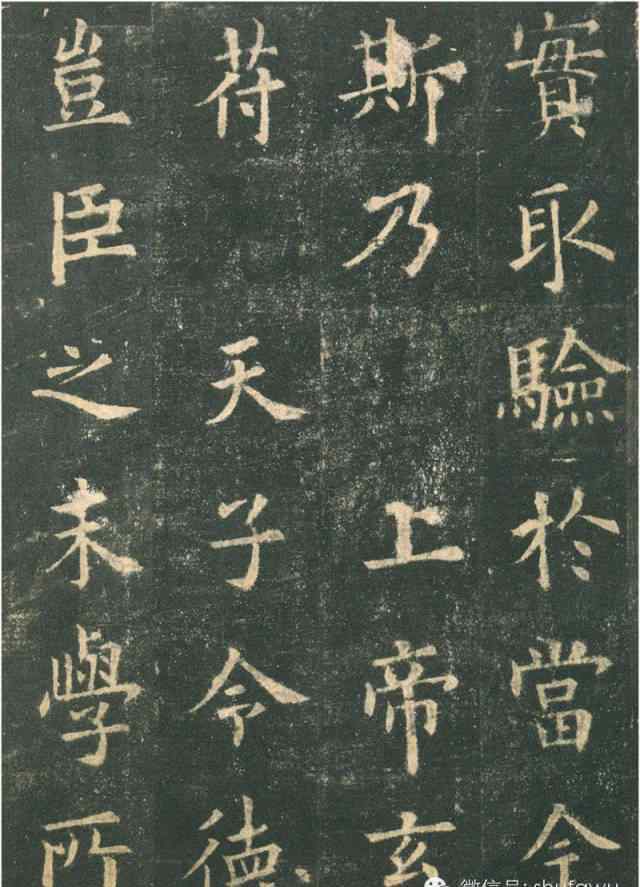 實取驗於當今
斯乃上帝玄
苻天子令德
豈臣之末學所
微信号: shufawu